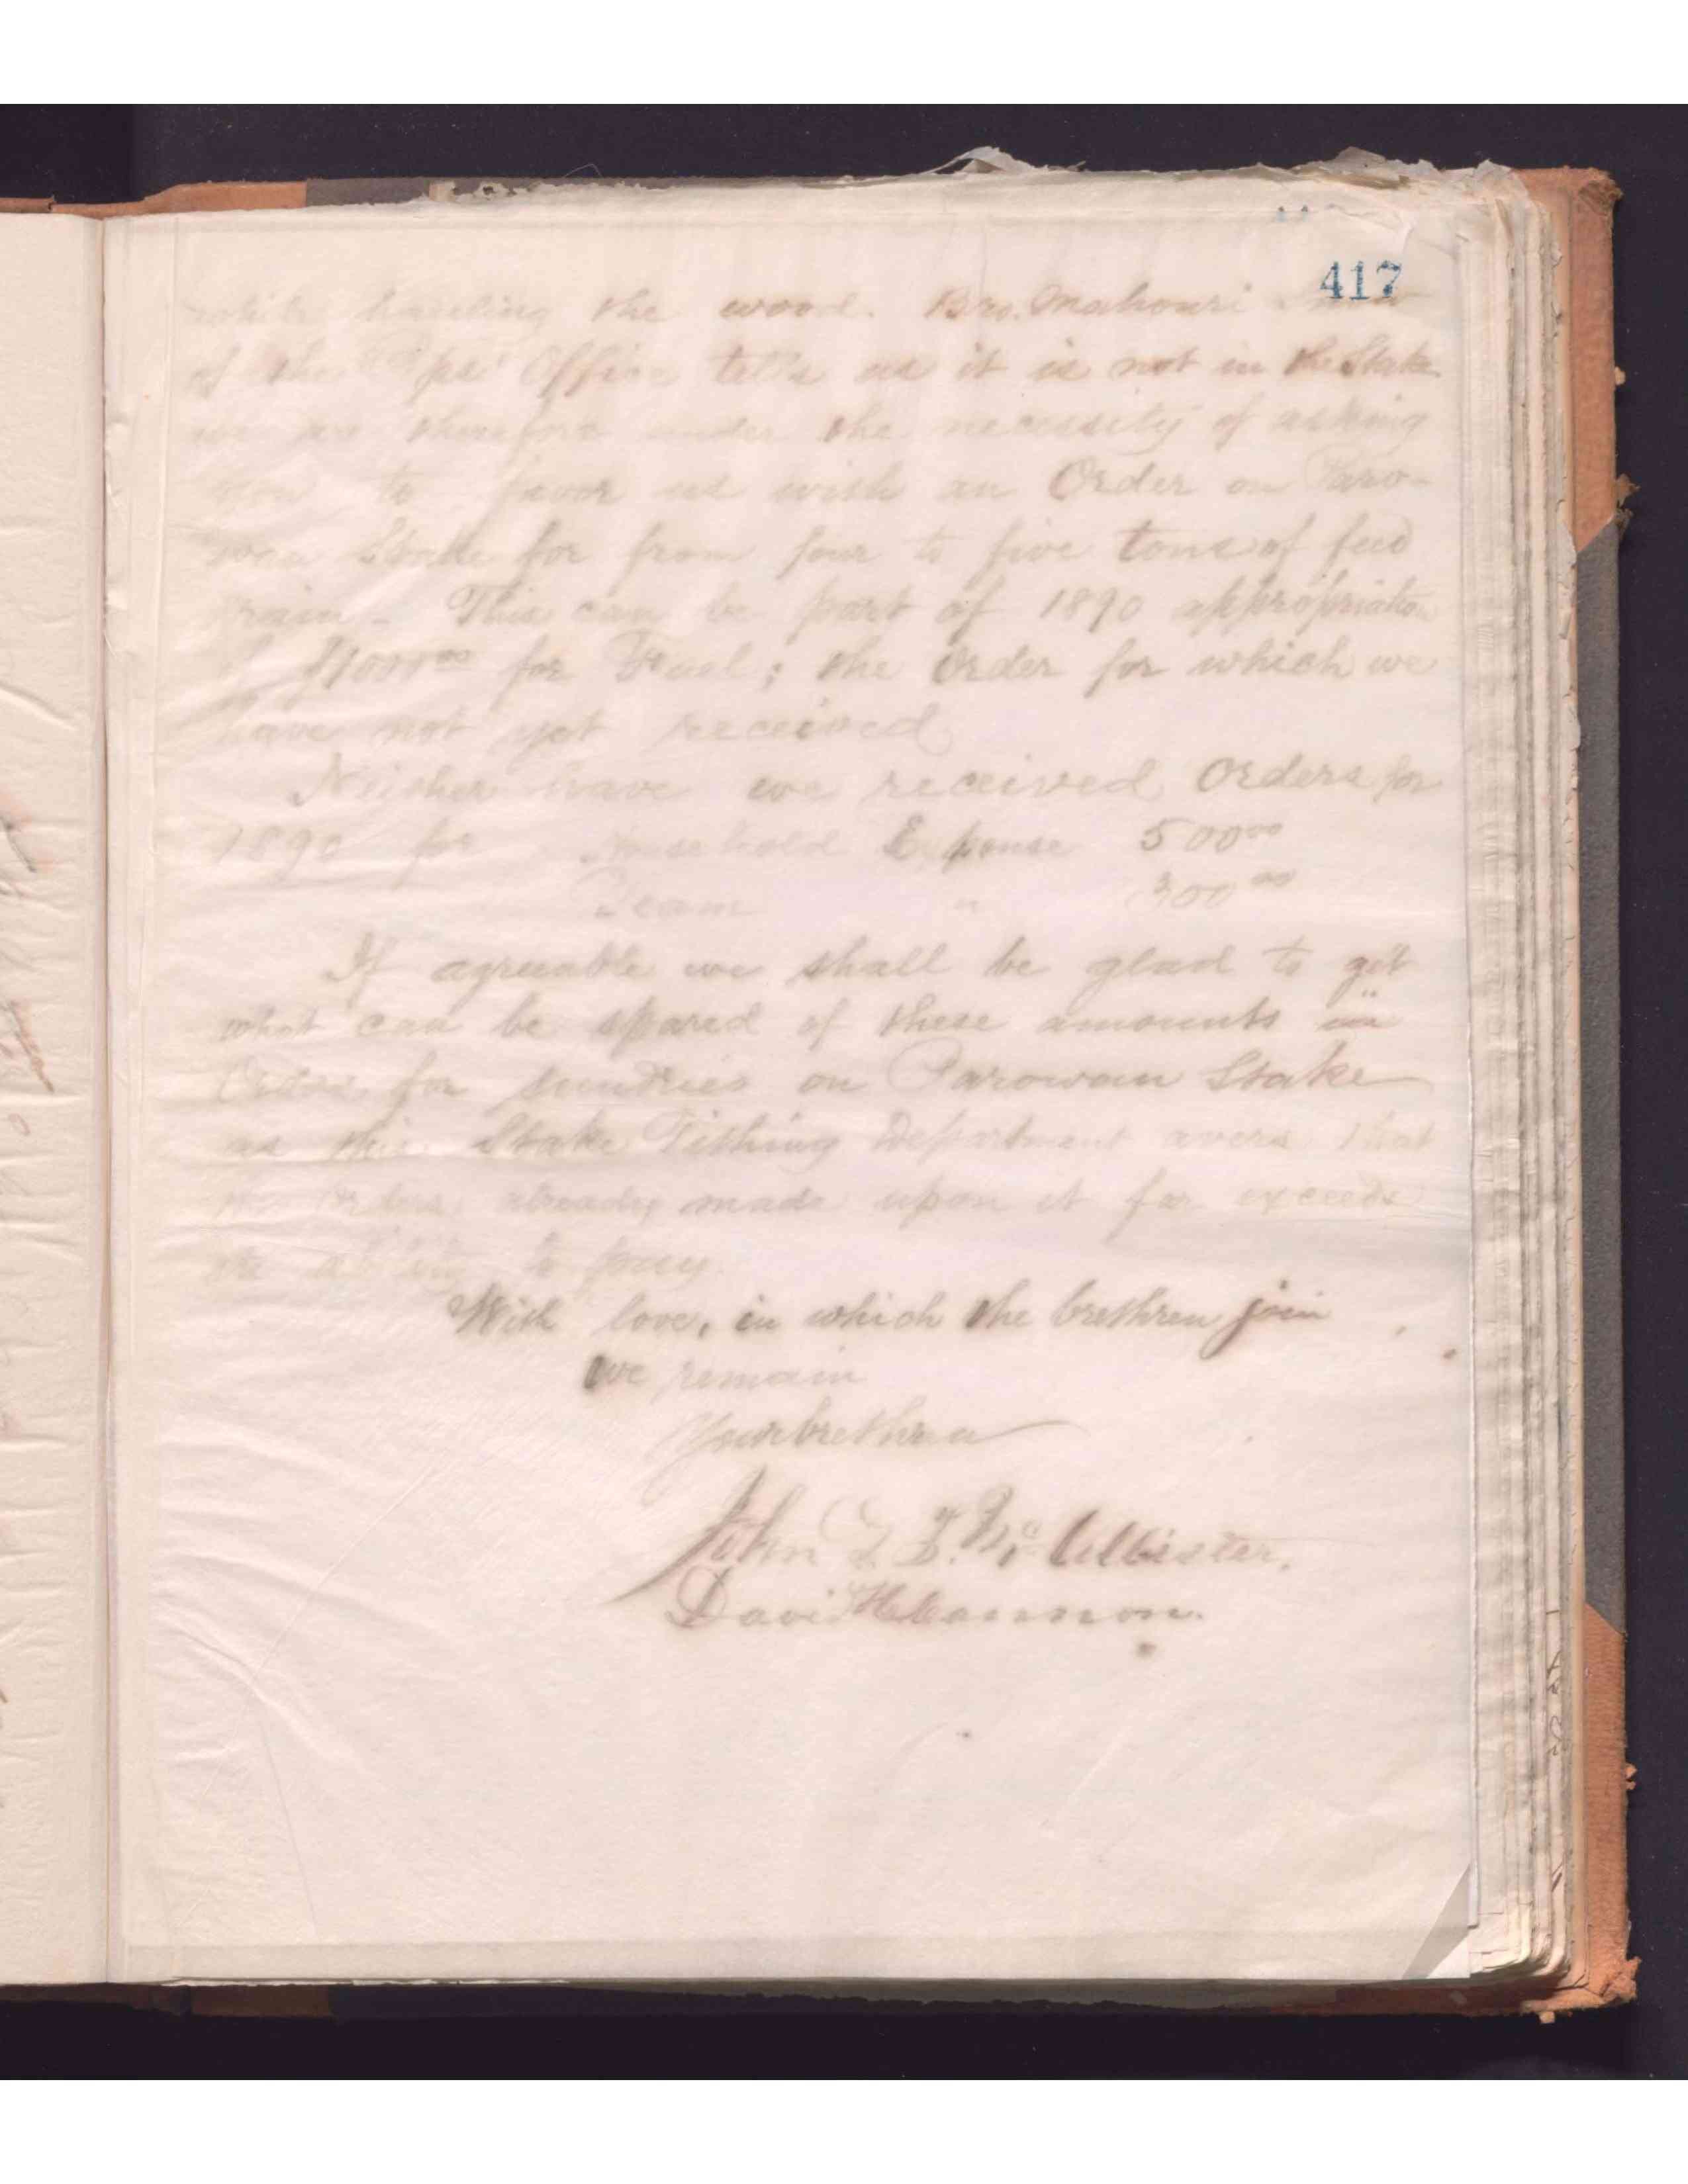 417
while hauling the wood. Bro. Mahonri Snow
of the Bps' Office tells us it is not in the Stake
we are therefore under the necessity of asking
you to favor us with an Order on Paro-
wan Stake for from four to five tons of feed
grain - This can be part of 1890 appropriation
of $1000⁰⁰ for Fuel; the Order for which we
have not yet received
Neither have we received Orders for
1890 for Household Expense 500⁰⁰
Team " 300⁰⁰
If agreeable we shall be glad to get
what can be spared of these amounts in
Orders for sundries on Parowan Stake
as this Stake Tithing Department avers that
the Orders already made upon it far exceeds
its ability to pay.
With love, in which the brethren join
we remain
Your brethren
John D. T. McAllister.
David H. Cannon.